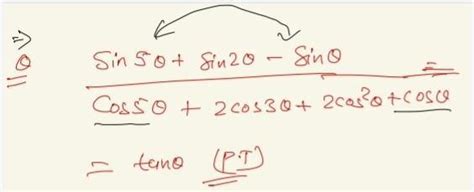 ⇒
Q Sin5θ + Sin2θ − Sinθ =
Cos5θ + 2cos3θ + 2cos²θ + cosθ
= tanθ (P.T)